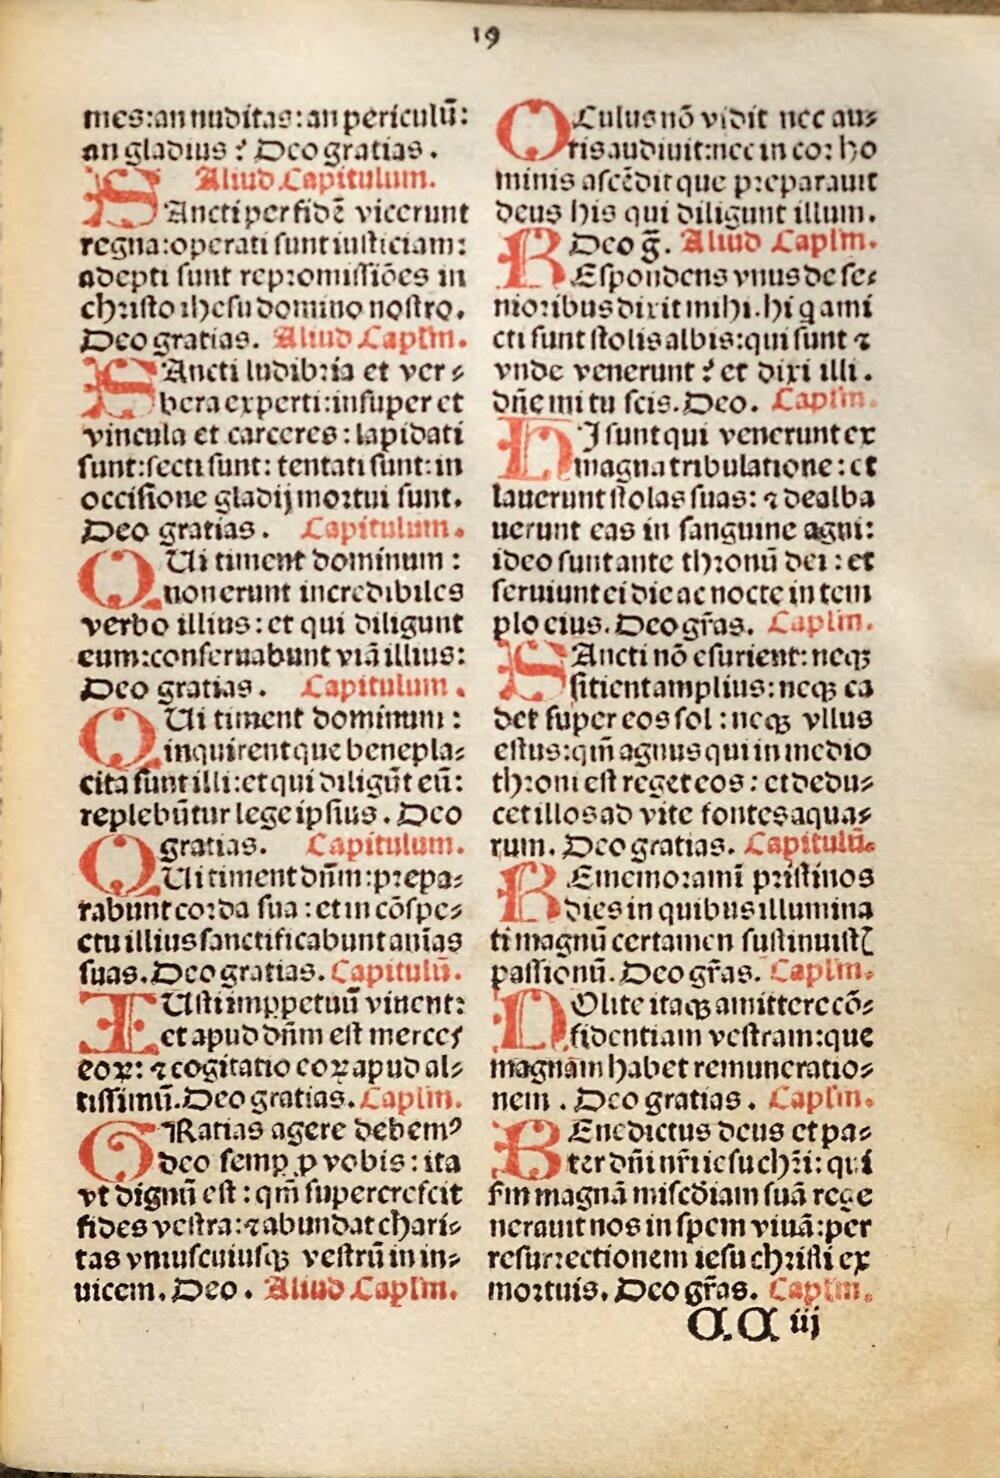 19
mes:an nuditas:an periculū:
an gladius? Deo gratias.
Aliud Capitulum.
SAncti per fidē vicerunt
regna:operati sunt iusticiam:
adepti sunt repromissiōes in
christo ihesu domino nostro.
Deo gratias. Aliud Caplm̄.
SAncti ludibria et ver⸗
bera experti:insuper et
vincula et carceres: lapidati
sunt:secti sunt: tentati sunt:in
occisione gladij mortui sunt.
Deo gratias. Capitulum.
QUi timent dominum:
non erunt incredibiles
verbo illius: et qui diligunt
eum:conseruabunt viā illius:
Deo gratias. Capitulum.
QUi timent dominum:
inquirent que benepla⸗
cita sunt illi:et qui diligūt eū:
replebūtur lege ipsius. Deo
gratias. Capitulum.
QUi timent dn̄m:prepa⸗
rabunt corda sua: et in cōspe⸗
ctu illius sanctificabunt anīas
suas. Deo gratias. Capitulū.
IUsti imꝑpetuū viuent:
et apud dn̄m est merces
eoꝝ: ⁊ cogitatio eoꝝ apud al⸗
tissimū. Deo gratias. Caplm̄.
GRatias agere debemꝰ
deo semꝑ ꝓ vobis: ita
vt dignū est: qm̄ supercrescit
fides vestra:⁊ abundat chari⸗
tas vniuscuiusqꝫ vestrū in in⸗
uicem. Deo. Aliud Caplm̄.
OCulus nō vidit nec au⸗
ris audiuit:nec in cor ho
minis ascēdit que preparauit
deus his qui diligunt illum.
Deo ḡ. Aliud Caplm̄.
REspondens vnus de se⸗
nioribus dixit mihi. hi q ami
cti sunt stolis albis:qui sunt ⁊
vnde venerunt? et dixi illi.
dn̄e mi tu scis. Deo. Caplm̄.
HJ sunt qui venerunt ex
magna tribulatione: et
lauerunt stolas suas: ⁊ dealba
uerunt eas in sanguine agni:
ideo sunt ante thronū dei: et
seruiunt ei die ac nocte in tem
plo eius. Deo gr̄as. Caplm̄.
SAncti nō esurient: neqꝫ
sitient amplius: neqꝫ ca
det super eos sol: neqꝫ vllus
estus:qm̄ agnus qui in medio
throni est reget eos: et dedu⸗
cet illos ad vite fontes aqua⸗
rum. Deo gratias. Capitulū.
REmemoramī pristinos
dies in quibus illumina
ti magnū certamen sustinuistꝭ
passionū. Deo gr̄as. Caplm̄.
NOlite itaqꝫ amittere cō⸗
fidentiam vestram:que
magnam habet remuneratio⸗
nem. Deo gratias. Caplm̄.
BEnedictus deus et pa⸗
ter dn̄i nr̄i iesu chr̄i: qui
s̄m magnā misc̄diam suā rege
nerauit nos in spem viuā:per
resurrectionem iesu christi ex
mortuis. Deo gr̄as. Caplm̄.
A.A iij